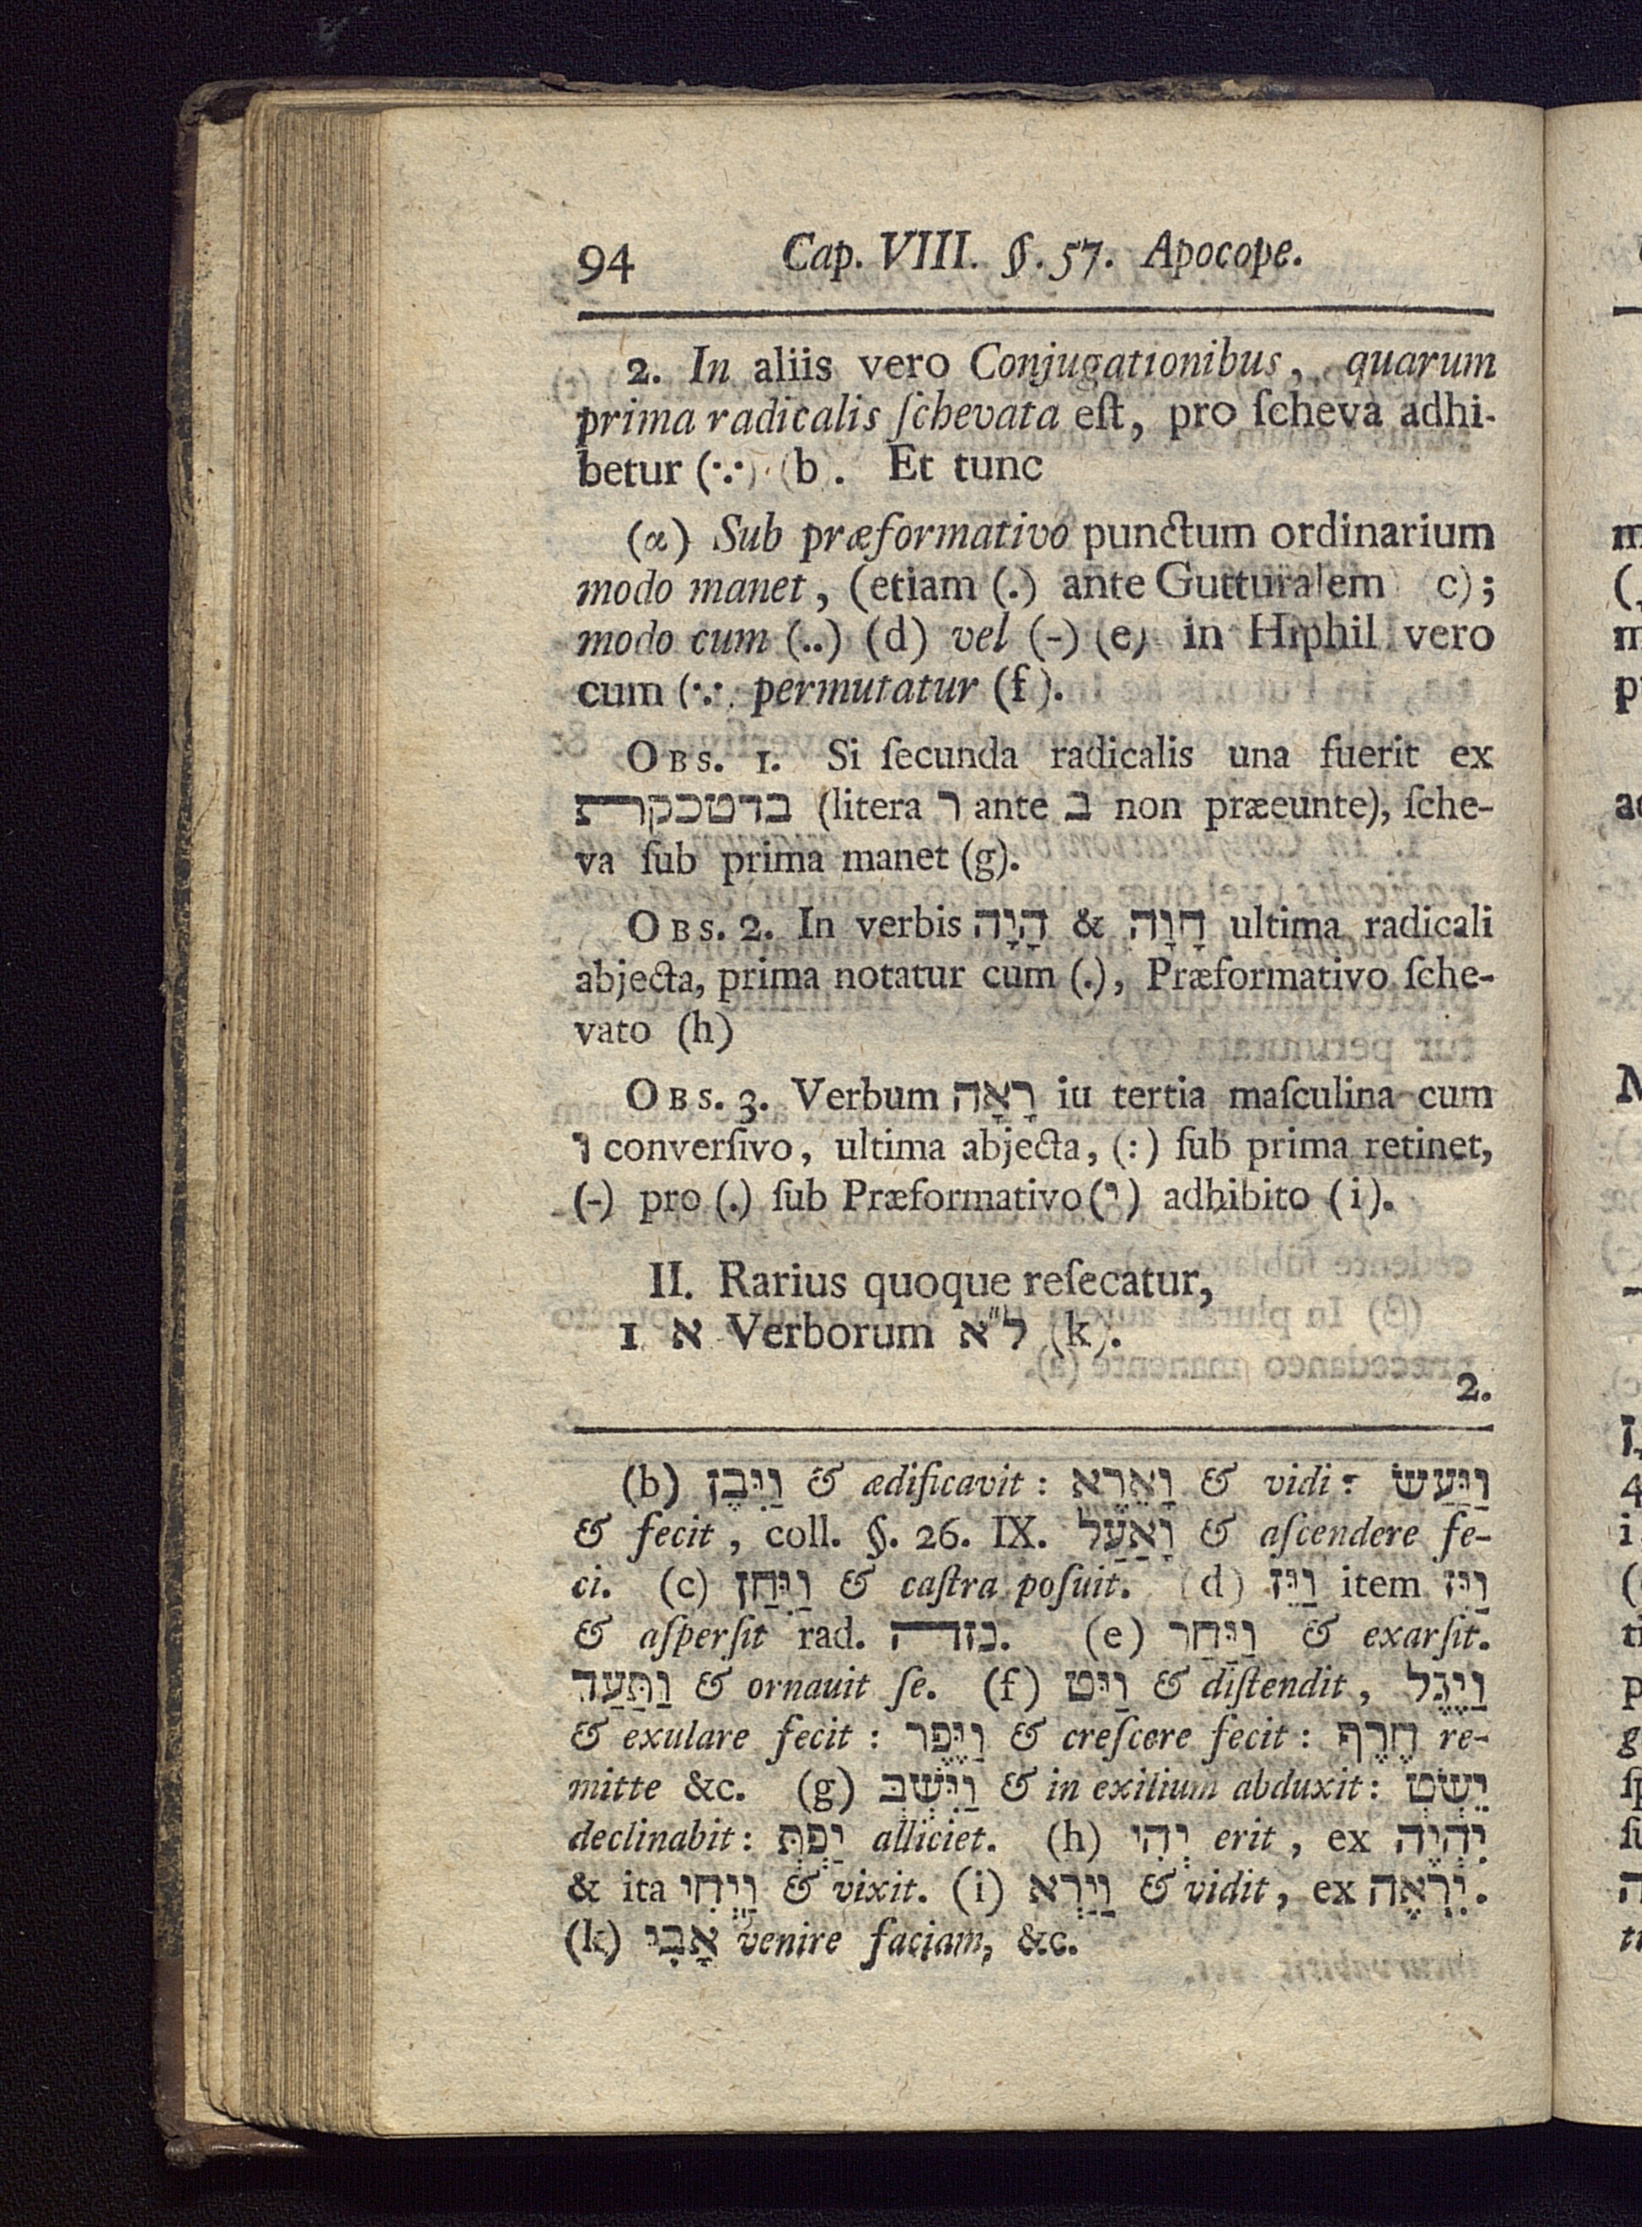 94 Cap. VIII. §. 57. Apocope.
2. In aliis vero Conjugationibus, quarum
prima radicalis ſchevata eſt, pro ſcheva adhi-
betur (ֶ) (b). Et tunc
(α) Sub præformativo punctum ordinarium
modo manet, (etiam (.) ante Gutturalem (c);
modo cum (..) (d) vel (-) (e) in Hiphil vero
cum (ֶ) permutatur (f).
OBS. 1. Si ſecunda radicalis una fuerit ex
בדטכקרת (litera ר ante ב non præeunte), ſche-
va ſub prima manet (g).
OBS. 2. In verbis הָיָה & חָוָה ultima radicali
abjecta, prima notatur cum (.), Præformativo ſche-
vato (h)
OBS. 3. Verbum רָאָה iu tertia maſculina cum
ו converſivo, ultima abjecta, (:) ſub prima retinet,
(-) pro (.) ſub Præformativo (י) adhibito (i).
II. Rarius quoque reſecatur,
1 א Verborum ל״א (k).
2.
(b) וַיִּבֶן & ædificavit: וָאֵרֶא & vidi: וַיַּעַשׂ
& fecit, coll. §. 26. IX. וָאַעַל & aſcendere fe-
ci. (c) וַיִּחַן & caſtra poſuit. (d) וַיֵּז item וַיִּז
& aſperſit rad. נזה. (e) וַיִּחַר & exarſit.
וַתַּעַד & ornauit ſe. (f) וַיּט & diſtendit, וַיֶּגֶל
& exulare fecit: וַיֶּפֶר & creſcere fecit: הֶרֶף re-
mitte &c. (g) וַיִּשְׁבְּ & in exilium abduxit: יֵשְׂטְ
declinabit: יַפְתְּ alliciet. (h) יְהִי erit, ex יִהְיֶה
& ita וַיְחִי & vixit. (i) וַיַּרְא & vidit, ex יִרְאֶה.
(k) אָבִי venire faciam, &c.